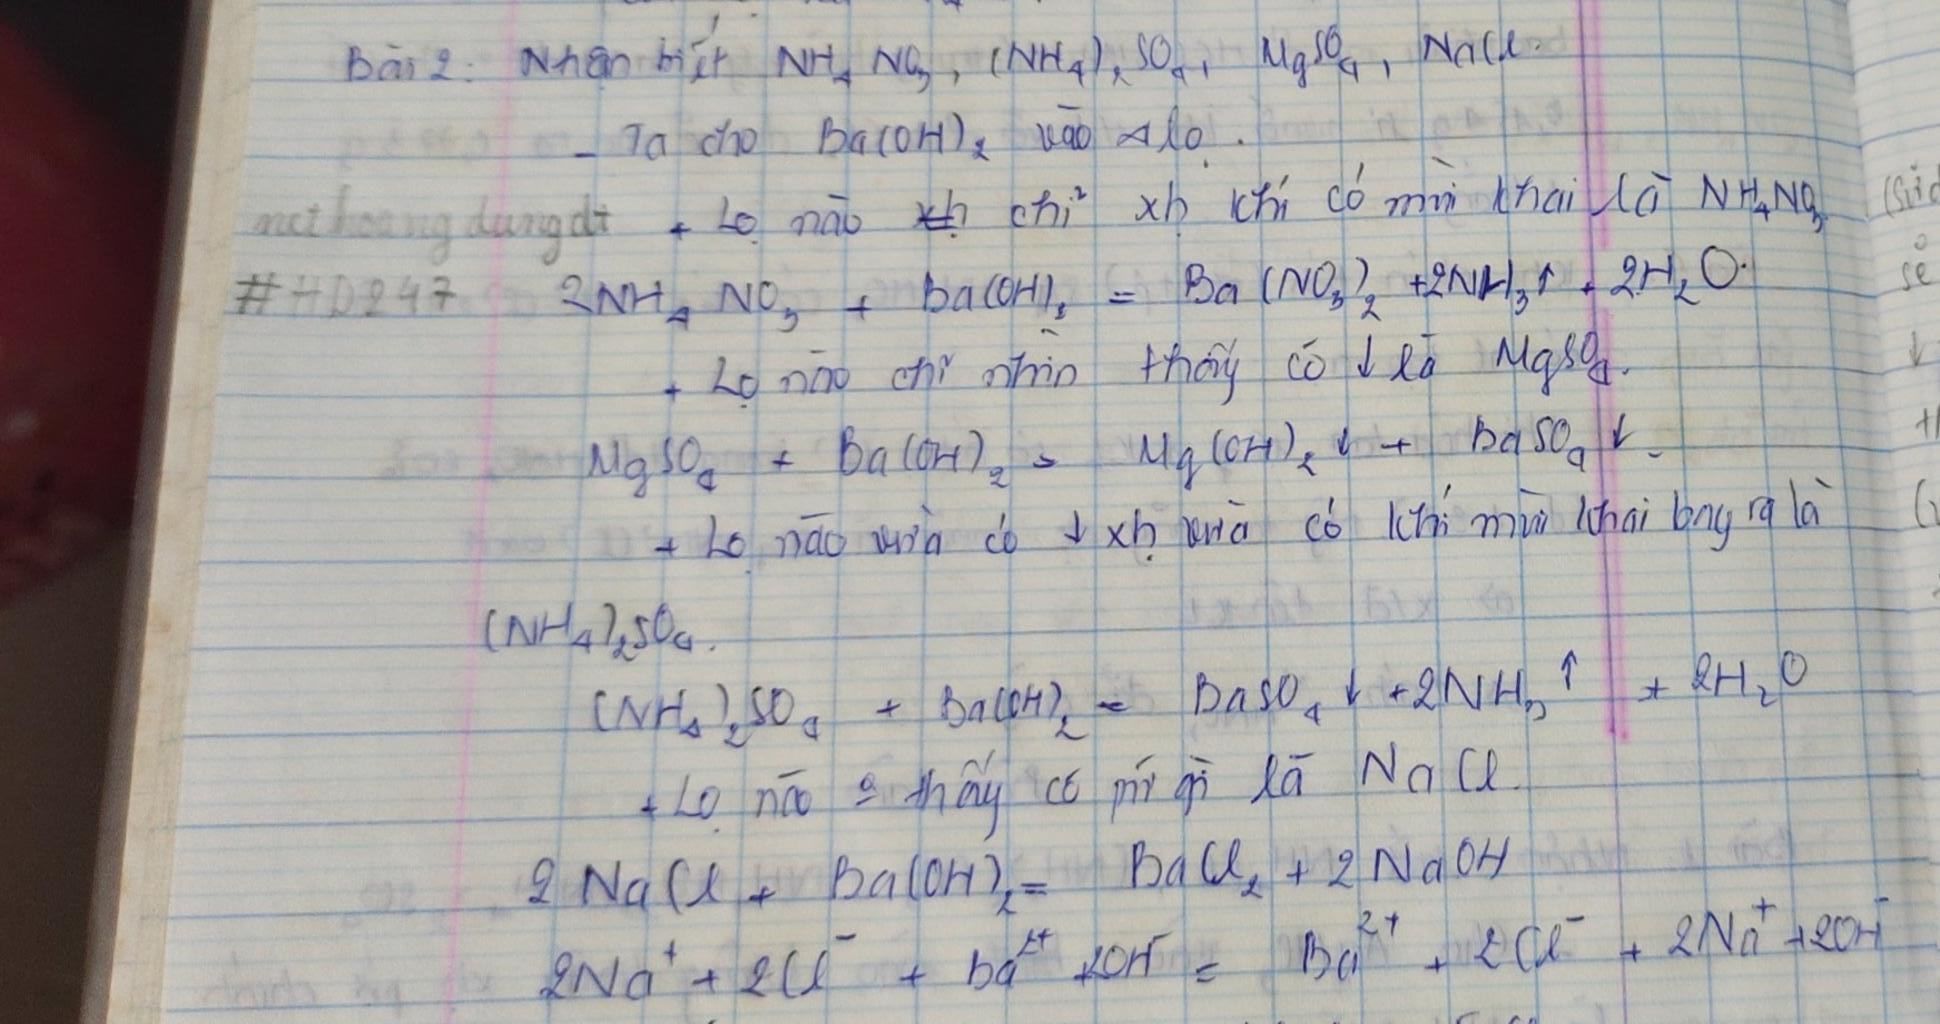 Bài 2: Nhận biết NH₄NO₃, (NH₄)₂SO₄, MgSO₄, NaCl.
- Ta cho Ba(OH)₂ vào 4 lọ.
+ Lọ nào chỉ xh khí có mùi khai là NH₄NO₃
met hoang dung dt
#HD247
2NH₄NO₃ + Ba(OH)₂ = Ba(NO₃)₂ + 2NH₃↑ + 2H₂O.
+ Lọ nào chỉ nhìn thấy có ↓ là MgSO₄.
MgSO₄ + Ba(OH)₂ = Mg(OH)₂↓ + BaSO₄↓.
+ Lọ nào vừa có ↓ xh vừa có khí mùi khai bay ra là
(NH₄)₂SO₄.
(NH₄)₂SO₄ + Ba(OH)₂ = BaSO₄↓ + 2NH₃↑ + 2H₂O
+ Lọ nào thấy có gì là NaCl.
2NaCl + Ba(OH)₂ = BaCl₂ + 2NaOH
2Na⁺ + 2Cl⁻ + Ba²⁺ + 2OH⁻ = Ba²⁺ + 2Cl⁻ + 2Na⁺ + 2OH⁻